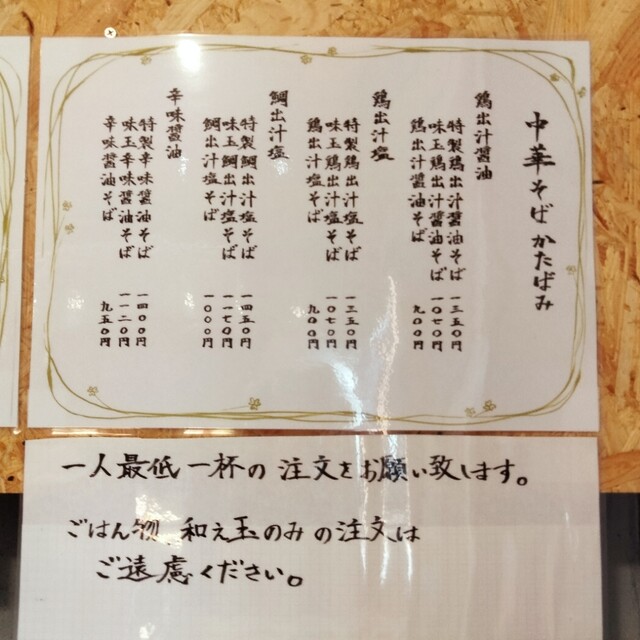 中華そば かたばみ
鶏出汁醤油
特製鶏出汁醤油そば 一三五〇円
味玉鶏出汁醤油そば 一〇七〇円
鶏出汁醤油そば 九〇〇円
鶏出汁塩
特製鶏出汁塩そば 一三五〇円
味玉鶏出汁塩そば 一〇七〇円
鶏出汁塩そば 九〇〇円
鯛出汁塩
特製鯛出汁塩そば 一四五〇円
味玉鯛出汁塩そば 一一七〇円
鯛出汁塩そば 一〇〇〇円
辛味醤油
特製辛味醤油そば 一四〇〇円
味玉辛味醤油そば 一一二〇円
辛味醤油そば 九五〇円
一人最低一杯の注文をお願い致します。
ごはん物、和え玉のみの注文は
ご遠慮ください。